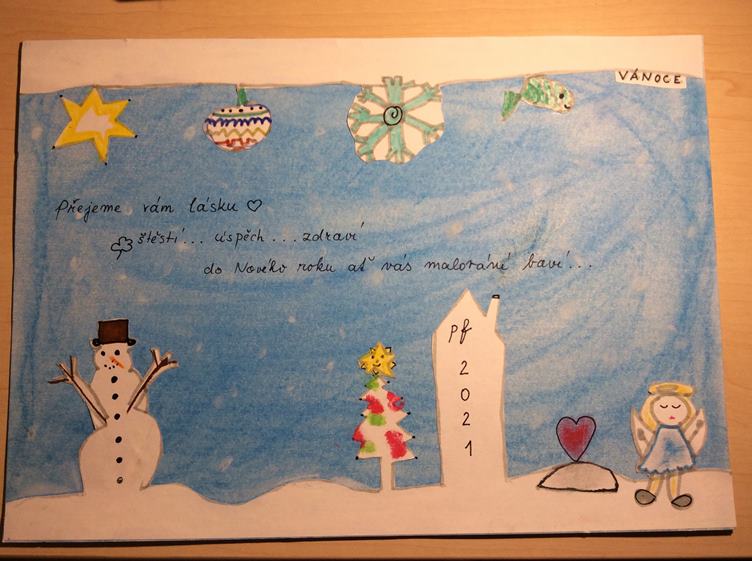 VÁNOCE
Přejeme vám lásku
štěstí... úspěch... zdraví
do Nového roku ať vás malování baví...
pf
2
0
2
1